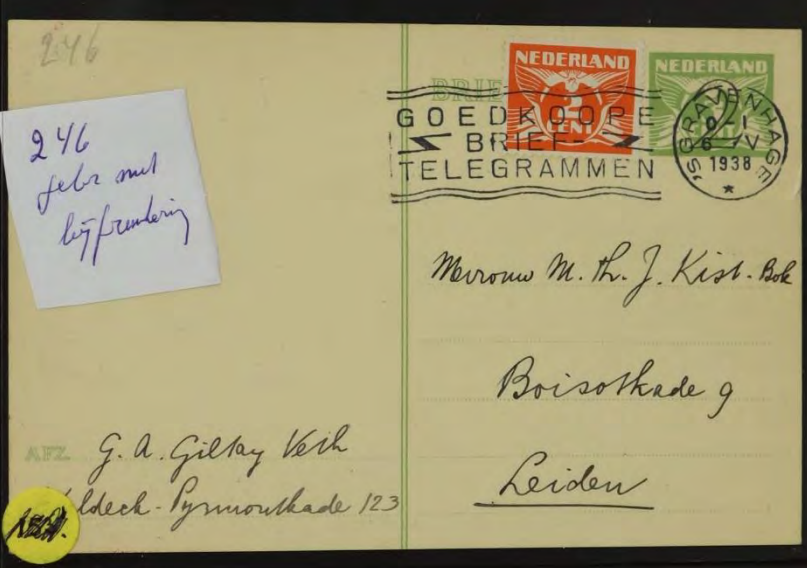 246
246
gebr met
bijfrankering
BRIE
NEDERLAND
CENT
NEDERLAND
GOEDKOOPE
BRIEF-
TELEGRAMMEN
'S GRAVENHAGE
1938
Mevrouw M. Th. J. Kist-Bok
Boisotkade 9
Leiden
AFZ.
G. A. Giltay Veth
ldeck-Pyrmontkade 123